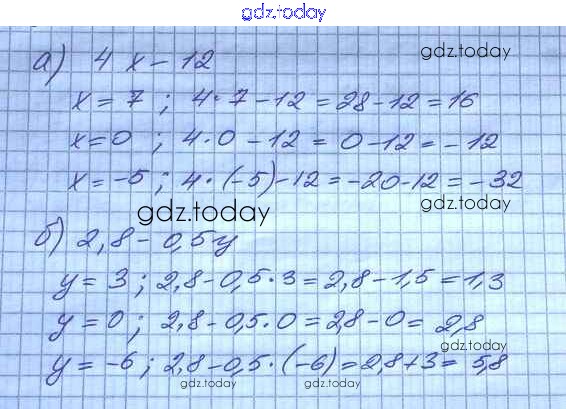 gdz.today
а) 4x - 12 gdz.today
x = 7 ; 4·7 - 12 = 28 - 12 = 16
x = 0 ; 4·0 - 12 = 0 - 12 = -12
x = -5 ; 4·(-5) - 12 = -20 - 12 = -32
gdz.today gdz.today
б) 2,8 - 0,5y
y = 3 ; 2,8 - 0,5·3 = 2,8 - 1,5 = 1,3
y = 0 ; 2,8 - 0,5·0 = 2,8 - 0 = 2,8
y = -6 ; 2,8 - 0,5·(-6) = 2,8 + 3 = 5,8
gdz.today gdz.today gdz.today